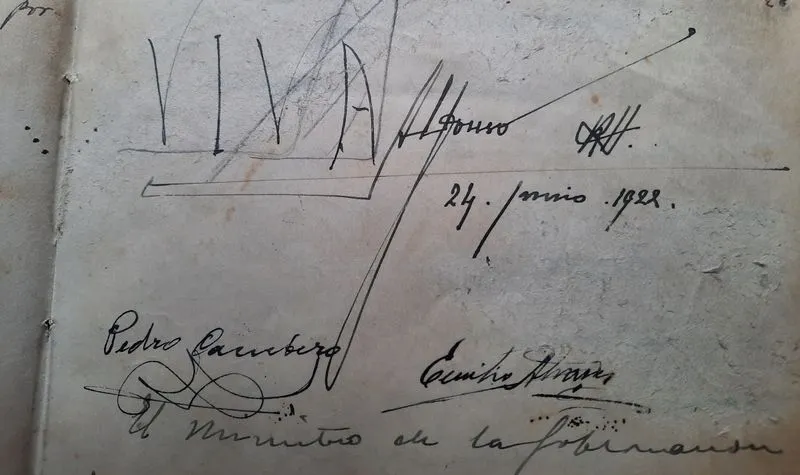 por
VIVA
Alfonso XIII.
24. junio . 1922.
Pedro Cambero
Emilio Alvarez
El Ministro de la Gobernación